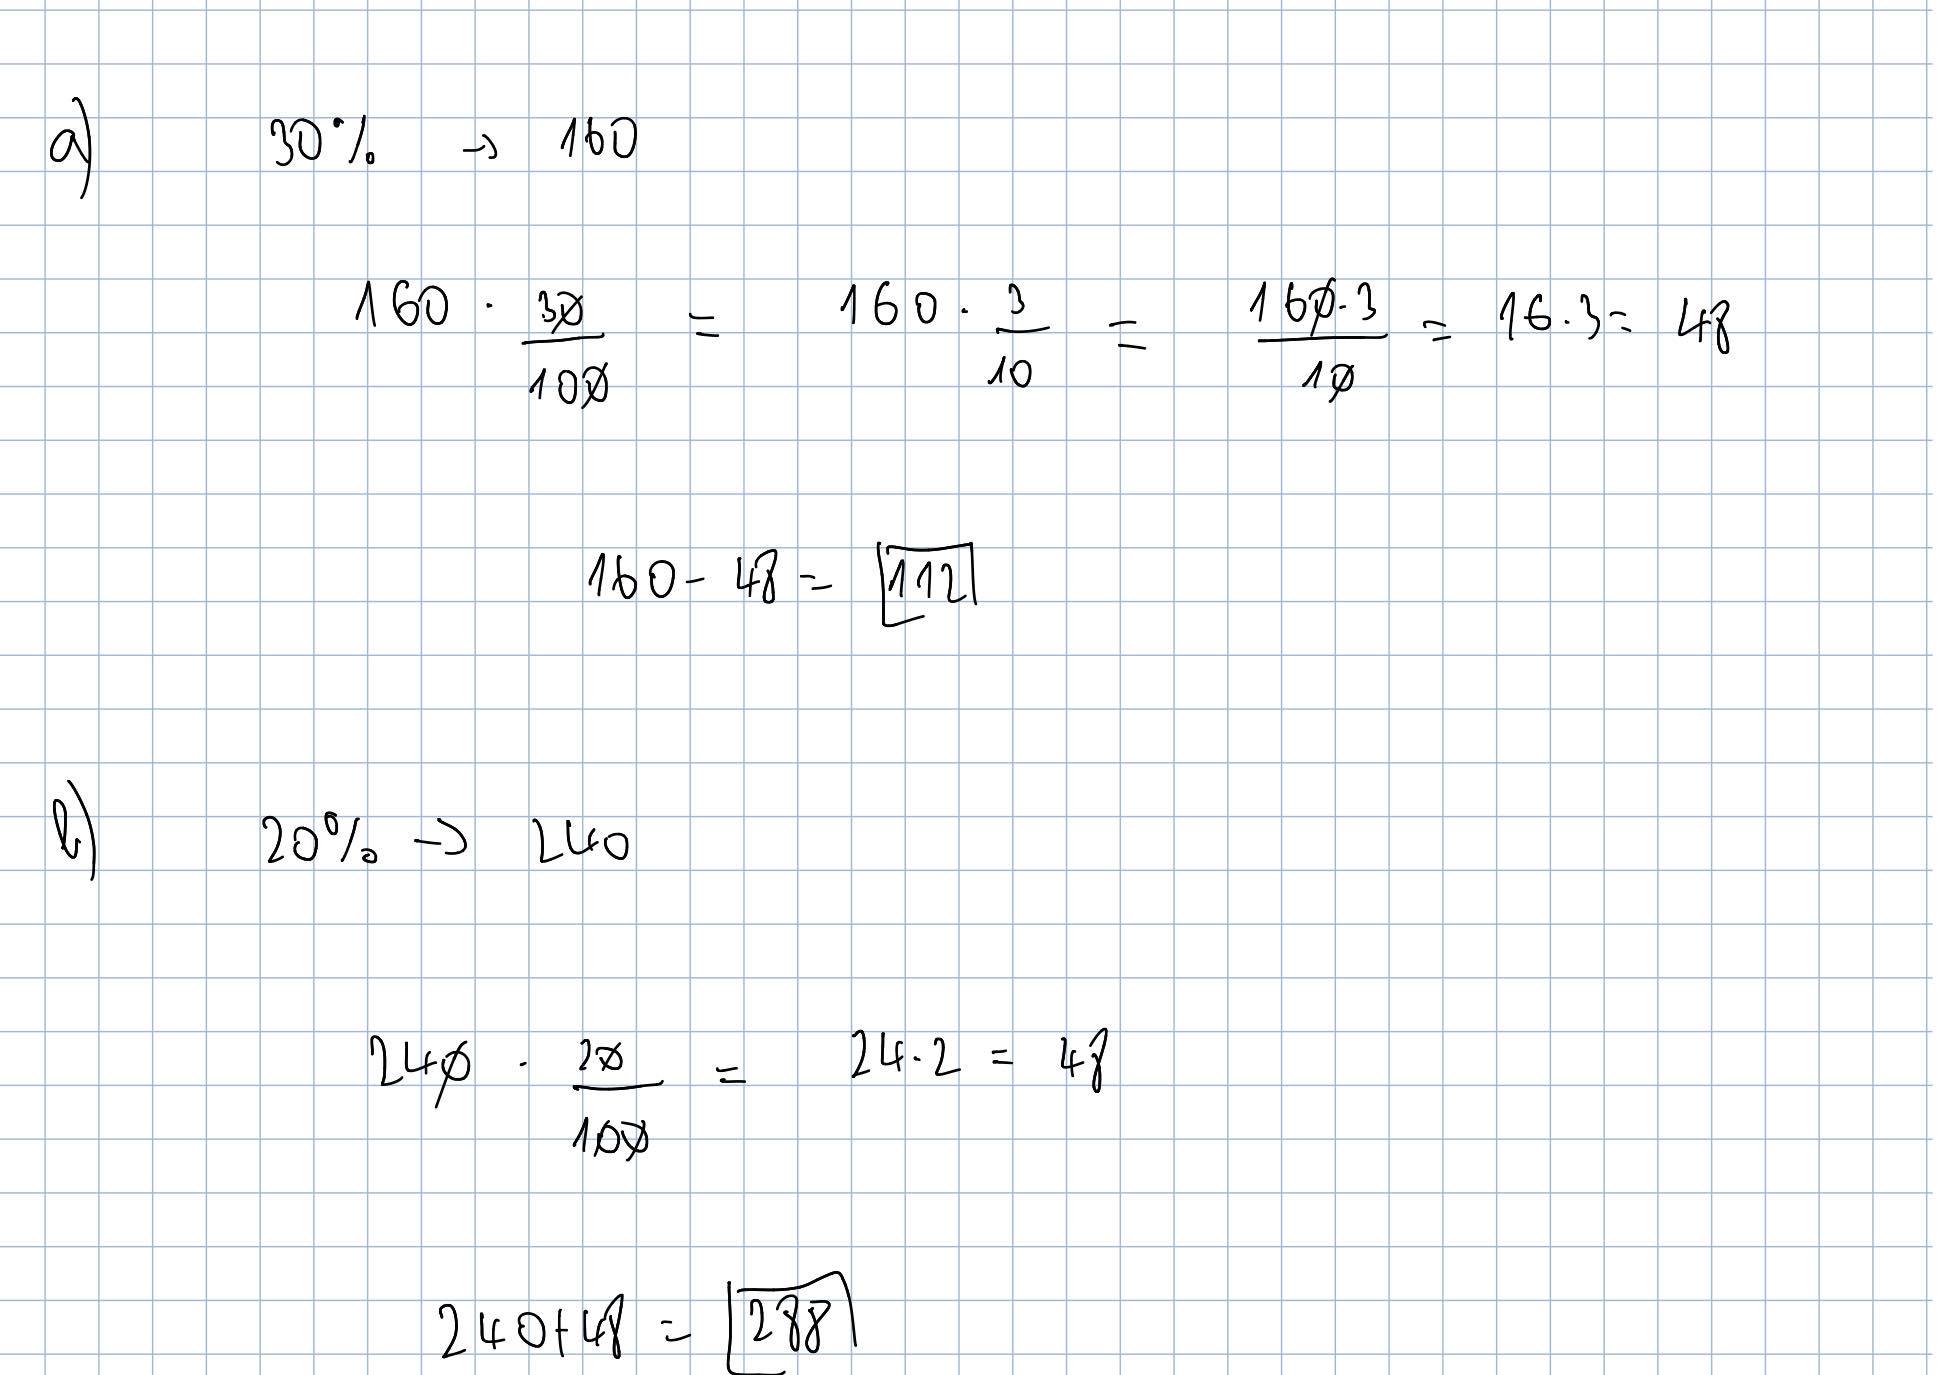 a) 30% → 160
160 · 30/100 = 160 · 3/10 = 160·3/10 = 16·3 = 48
160 - 48 = 112
b) 20% → 240
240 · 20/100 = 24·2 = 48
240+48 = 288